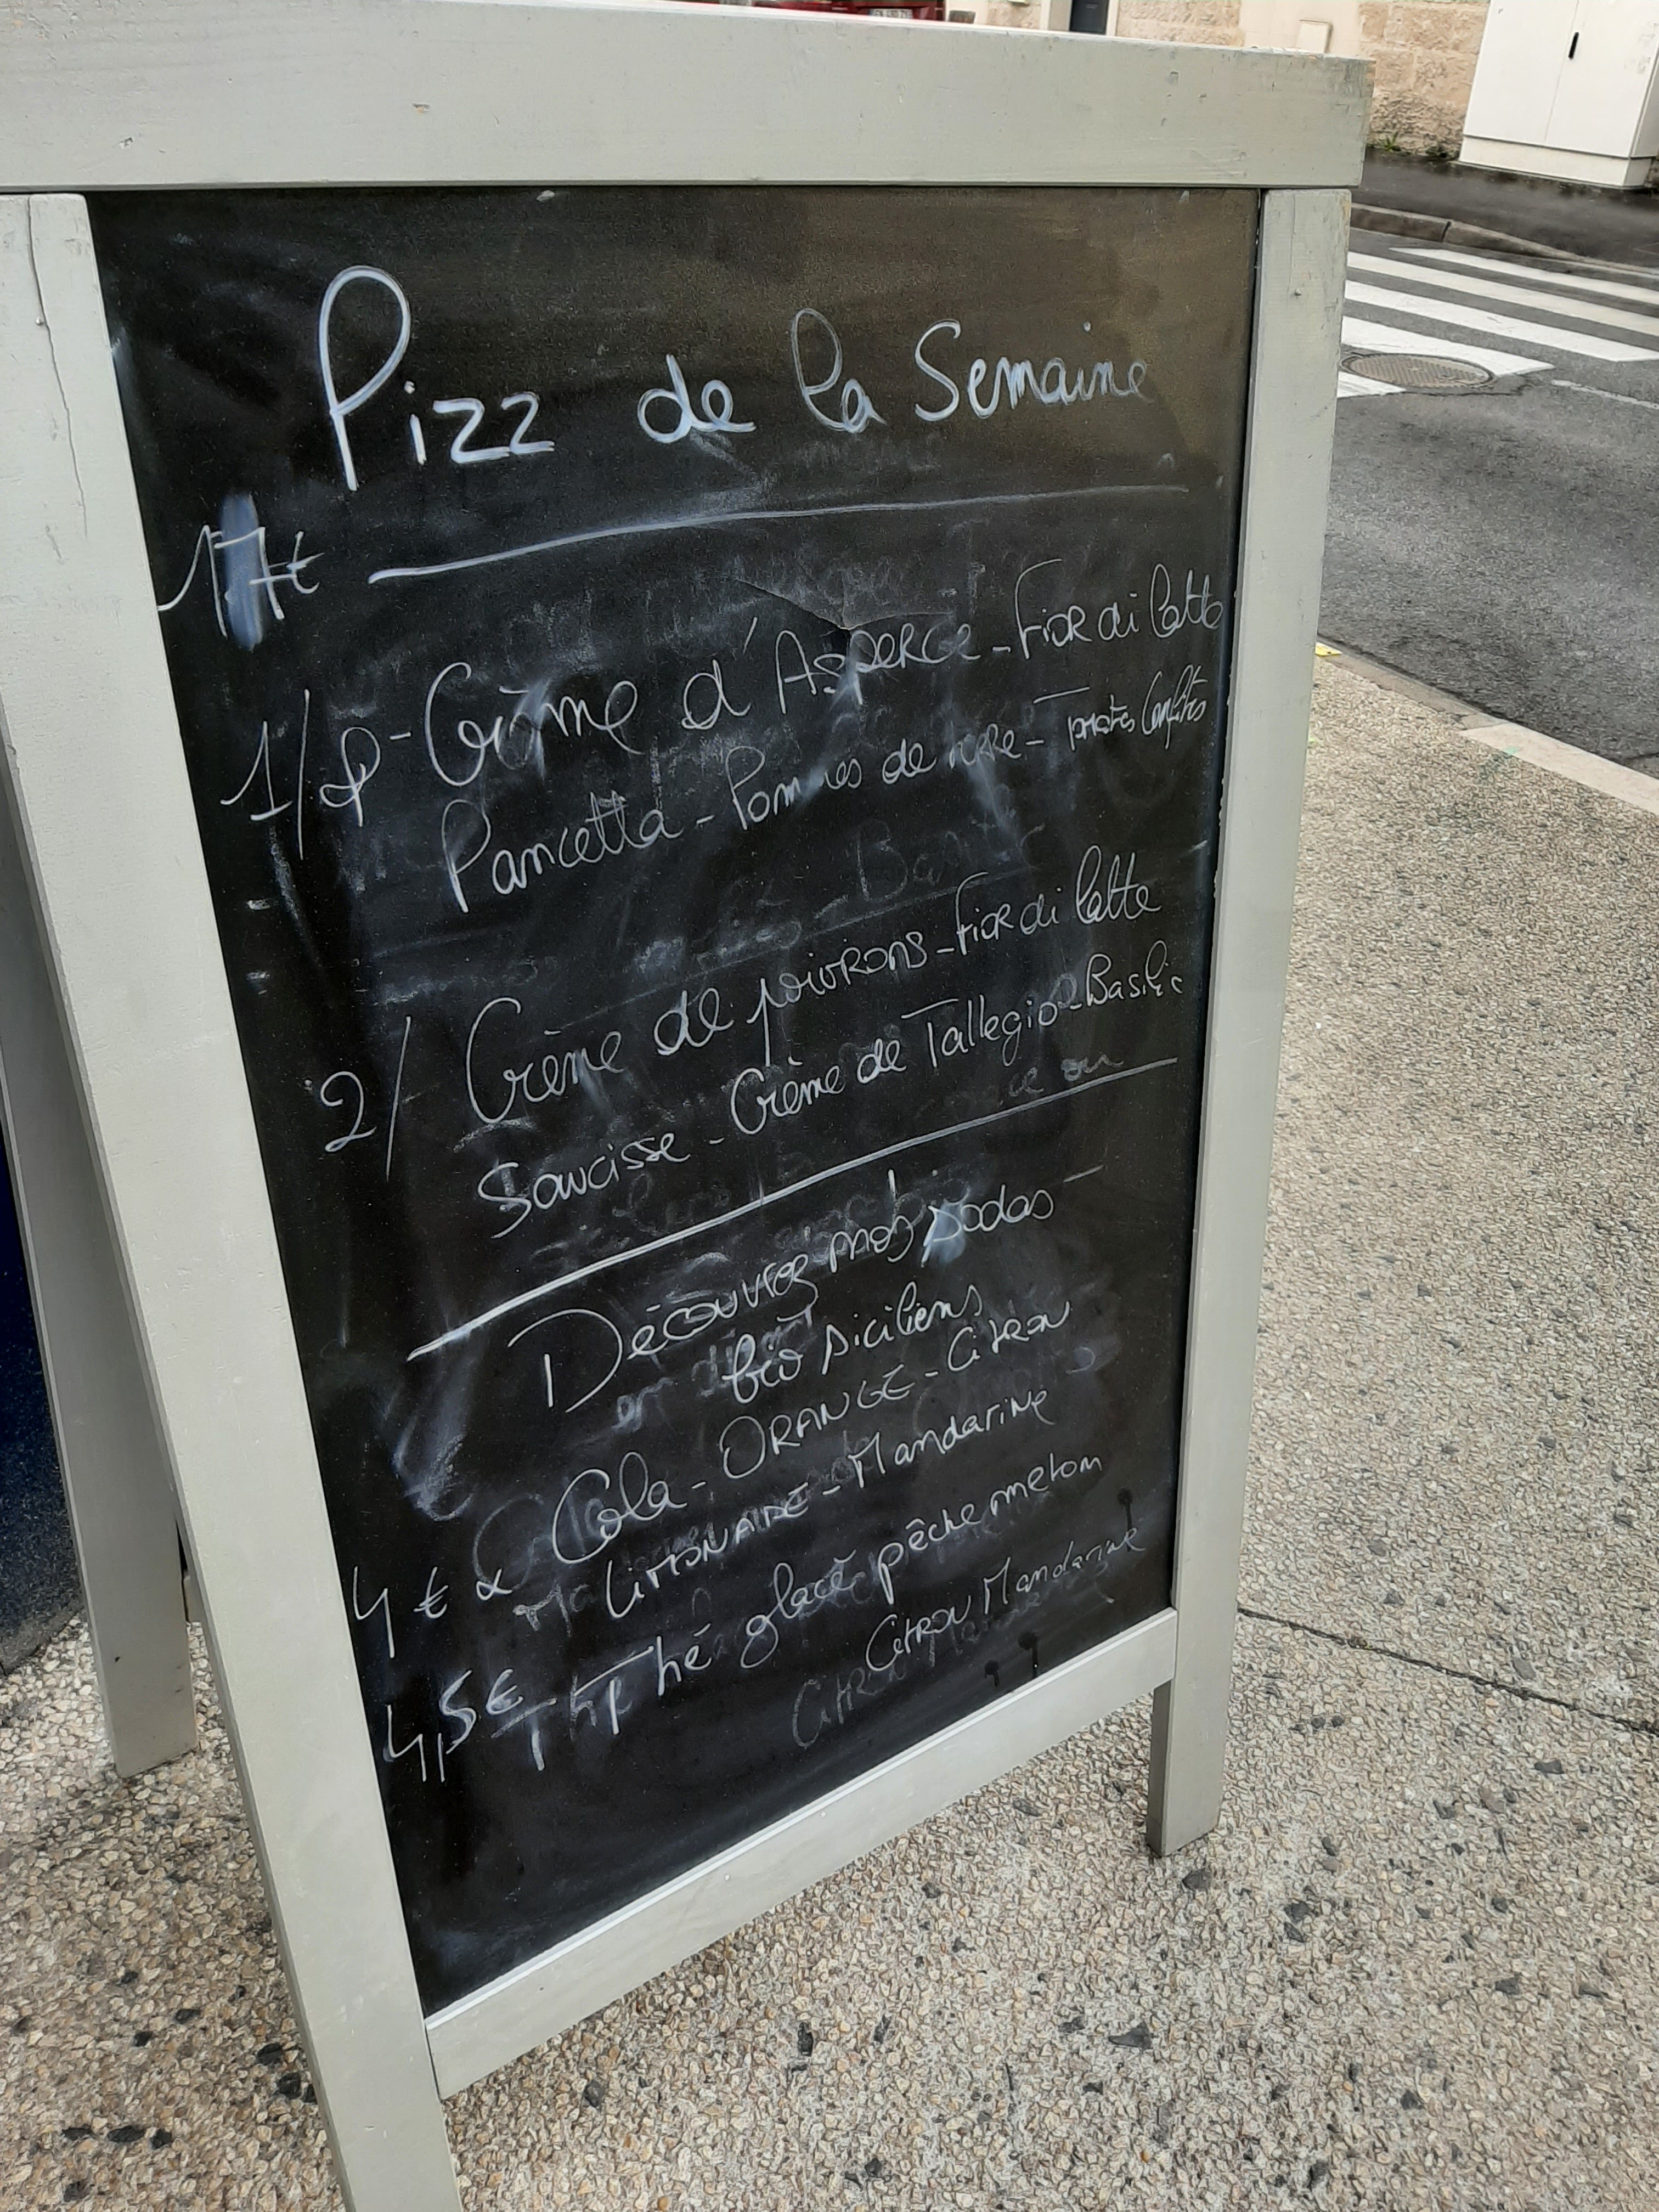 Pizz de la Semaine
17€
1/ Crème d'Asperge - Fior di latte
Pancetta - Pommes de terre - Tomates Confites
2/ Crème de poivrons - Fior di latte
Saucisse - Crème de Tallegio - Basilic
Découvrez nos sodas
bio siciliens
Cola - ORANGE - CitRON
4€ LiMONADE - Mandarine
4,5€ Thé glacé pêche melon
CitRON Mandarine